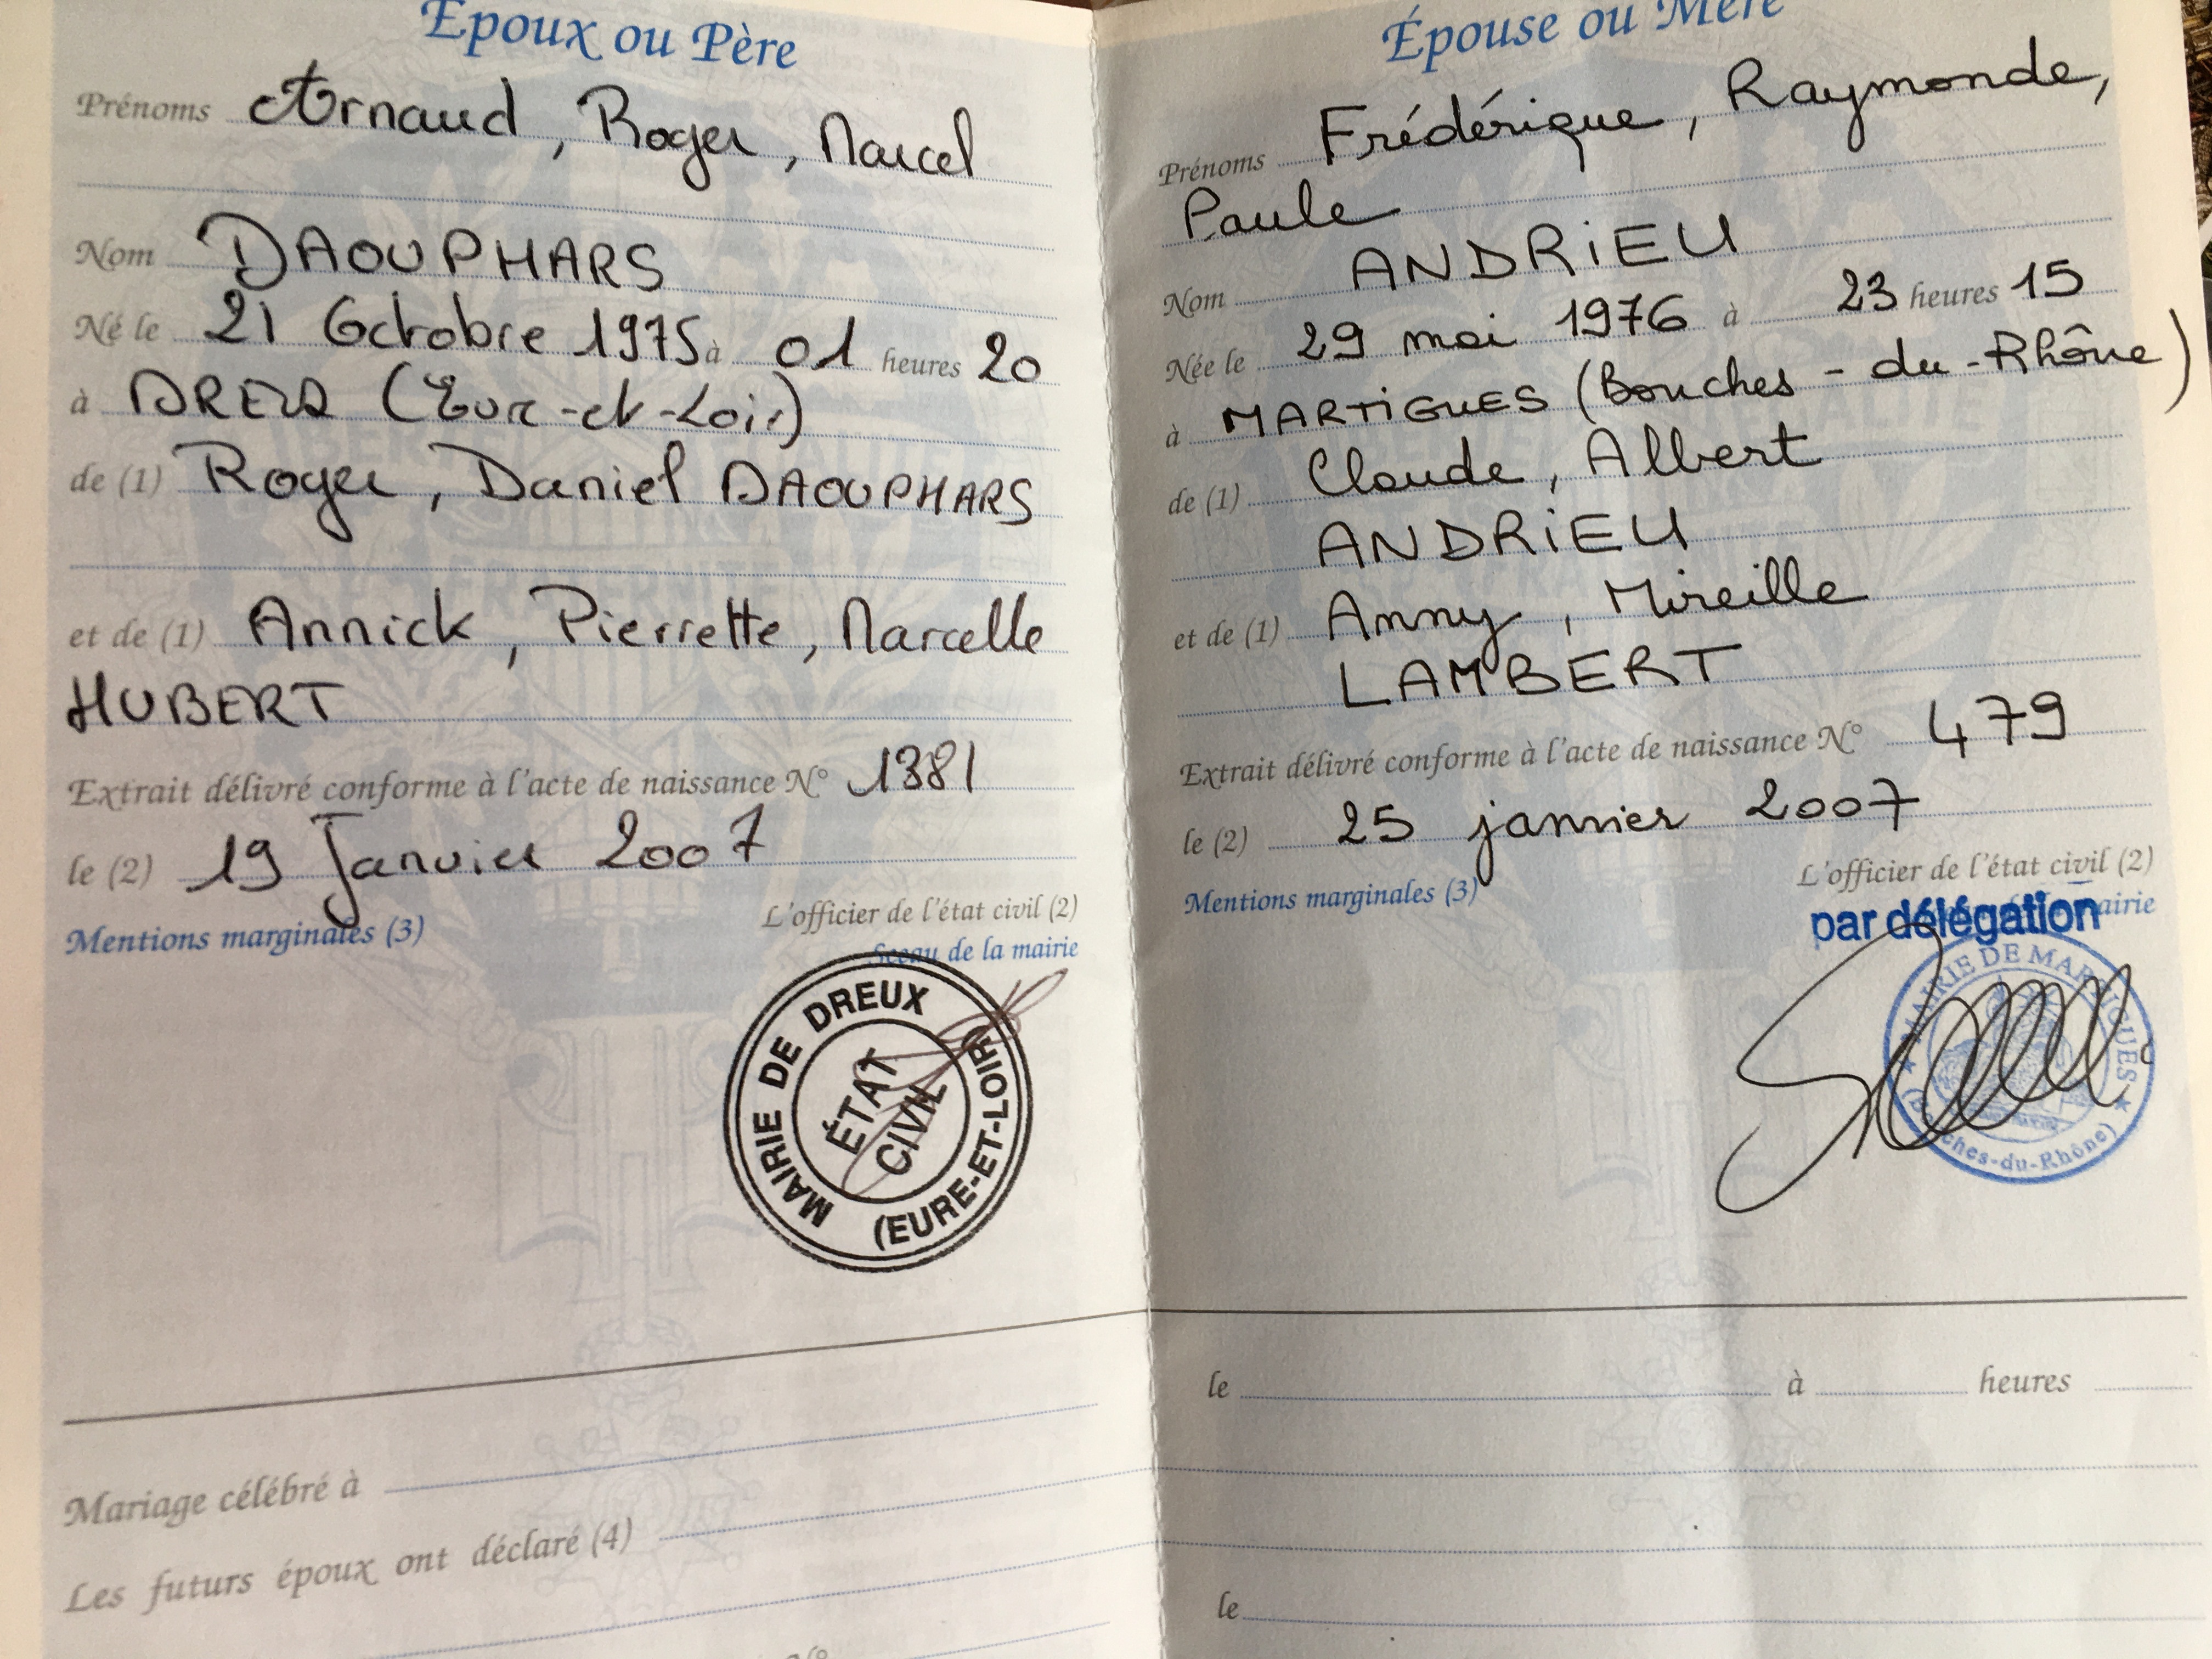 Époux ou Père
Prénoms Arnaud, Roger, Marcel
Nom DAOUPHARS
Né le 21 Octobre 1975 à 01 heures 20
à DREUX (Eure-et-Loir)
de (1) Roger, Daniel DAOUPHARS
et de (1) Annick, Pierrette, Marcelle
HUBERT
Extrait délivré conforme à l'acte de naissance N° 1381
le (2) 19 Janvier 2007
Mentions marginales (3)
L'officier de l'état civil (2)
Sceau de la mairie
MAIRIE DE DREUX
ÉTAT
CIVIL
(EURE-ET-LOIR)
Mariage célébré à
Les futurs époux ont déclaré (4)
Épouse ou Mère
Prénoms Frédérique, Raymonde,
Paule
Nom ANDRiEU
Née le 29 mai 1976 à 23 heures 15
à MARTIGUES (Bouches-du-Rhône)
de (1) Claude, Albert
ANDRiEU
et de (1) Anny, Mireille
LAMBERT
Extrait délivré conforme à l'acte de naissance N° 479
le (2) 25 janvier 2007
Mentions marginales (3)
L'officier de l'état civil (2)
par délégation mairie
MAIRIE DE MARTIGUES
(Bouches-du-Rhône)
le à heures
le